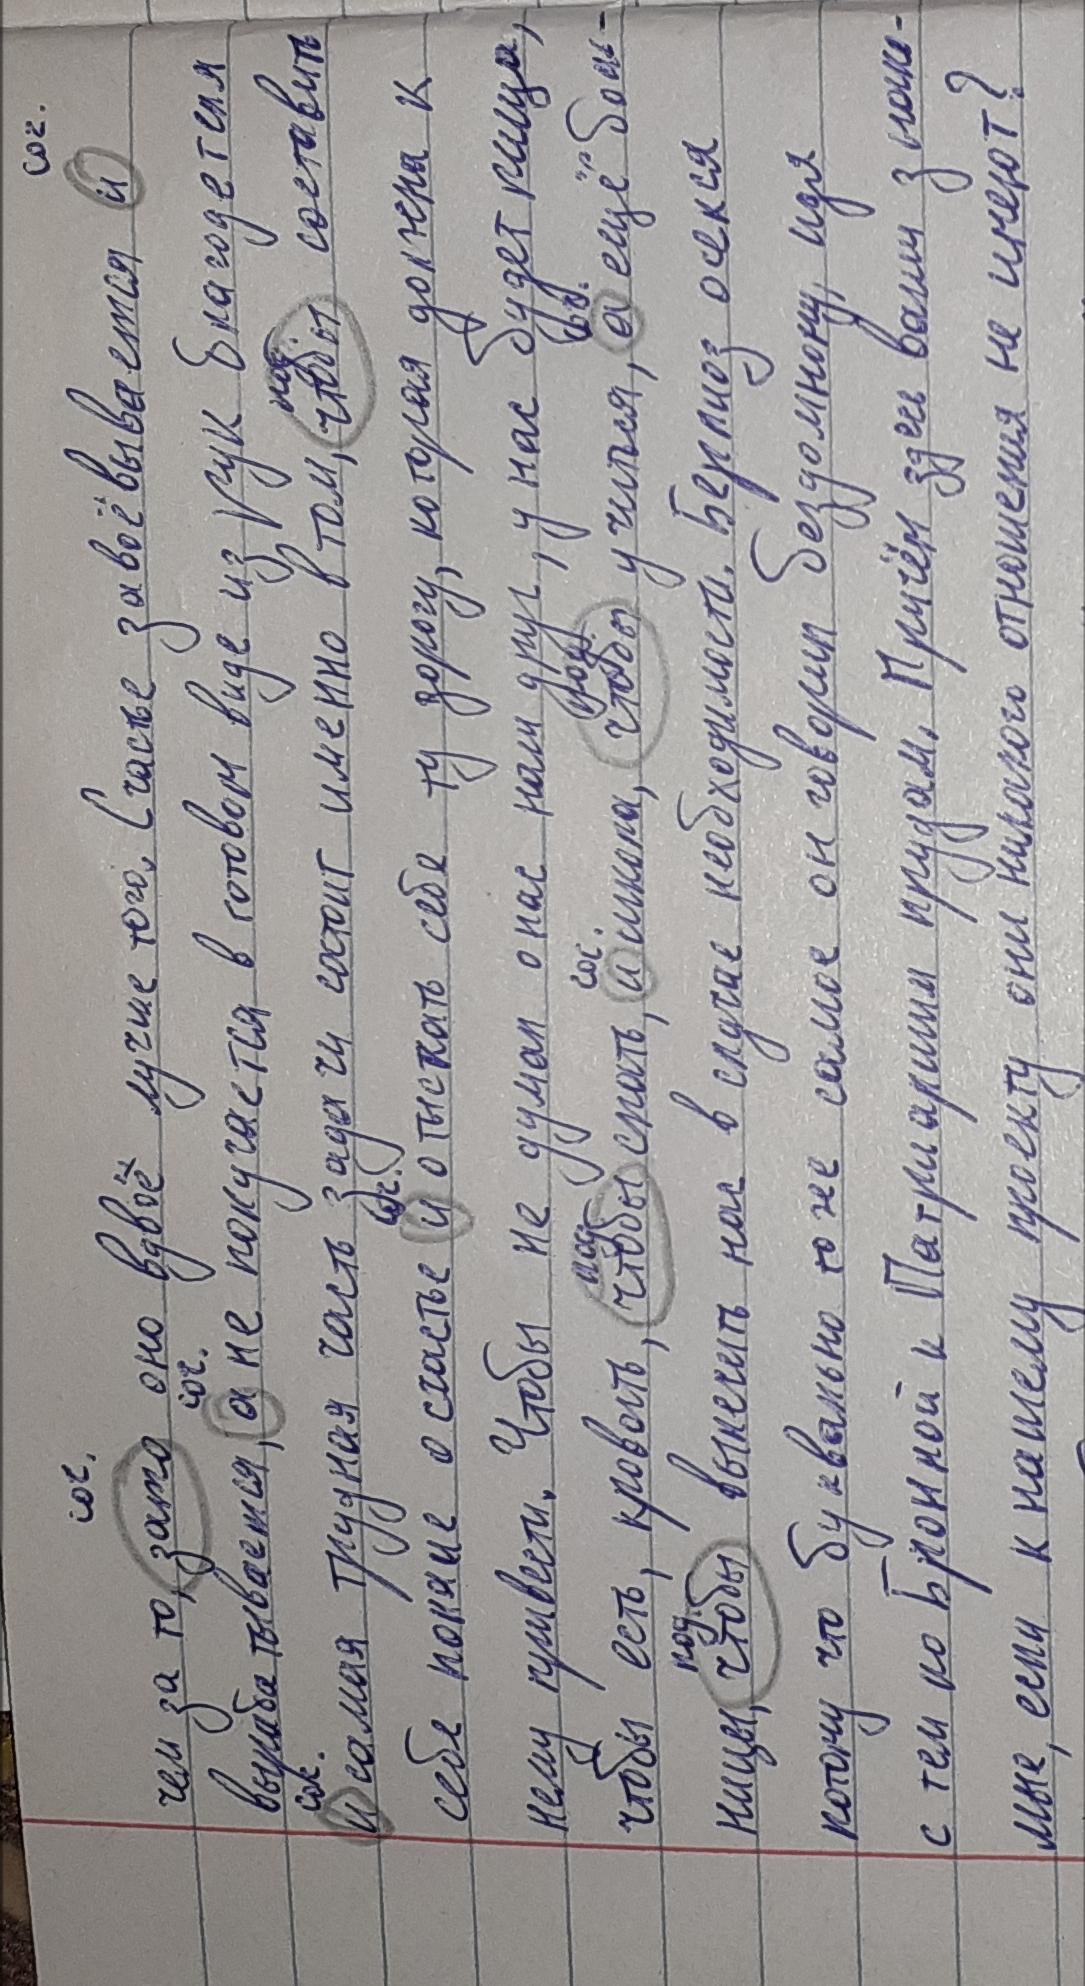 соч. соч.
чем за то, зато оно вдвоё лучше того. Счастье завоёвывается и
соч.
вырабатывается, а не покучается в готовом виде из рук благодетеля
соч. под.
И самая трудная часть задачи состоит именно в том, чтобы составить
соч.
себе поняие о счастье и отыскать себе ту дорогу, которая должна к
нему привести. Чтобы не думал о нас наш друг, у нас будет пища,
под. соч. под. соч.
чтобы есть, кровать, чтобы спать, и школа, чтобы учиться, а ещё боль-
под.
ницы, чтобы вылечить нас в случае необходимости. Берлиоз осекся
потому что буквально то же самое он говорил бездомному, идя
с тем по Бронной к Патриаршим прудам. Причём здесь ваши знако-
мые, если к нашему проекту они никакого отношения не имеют?